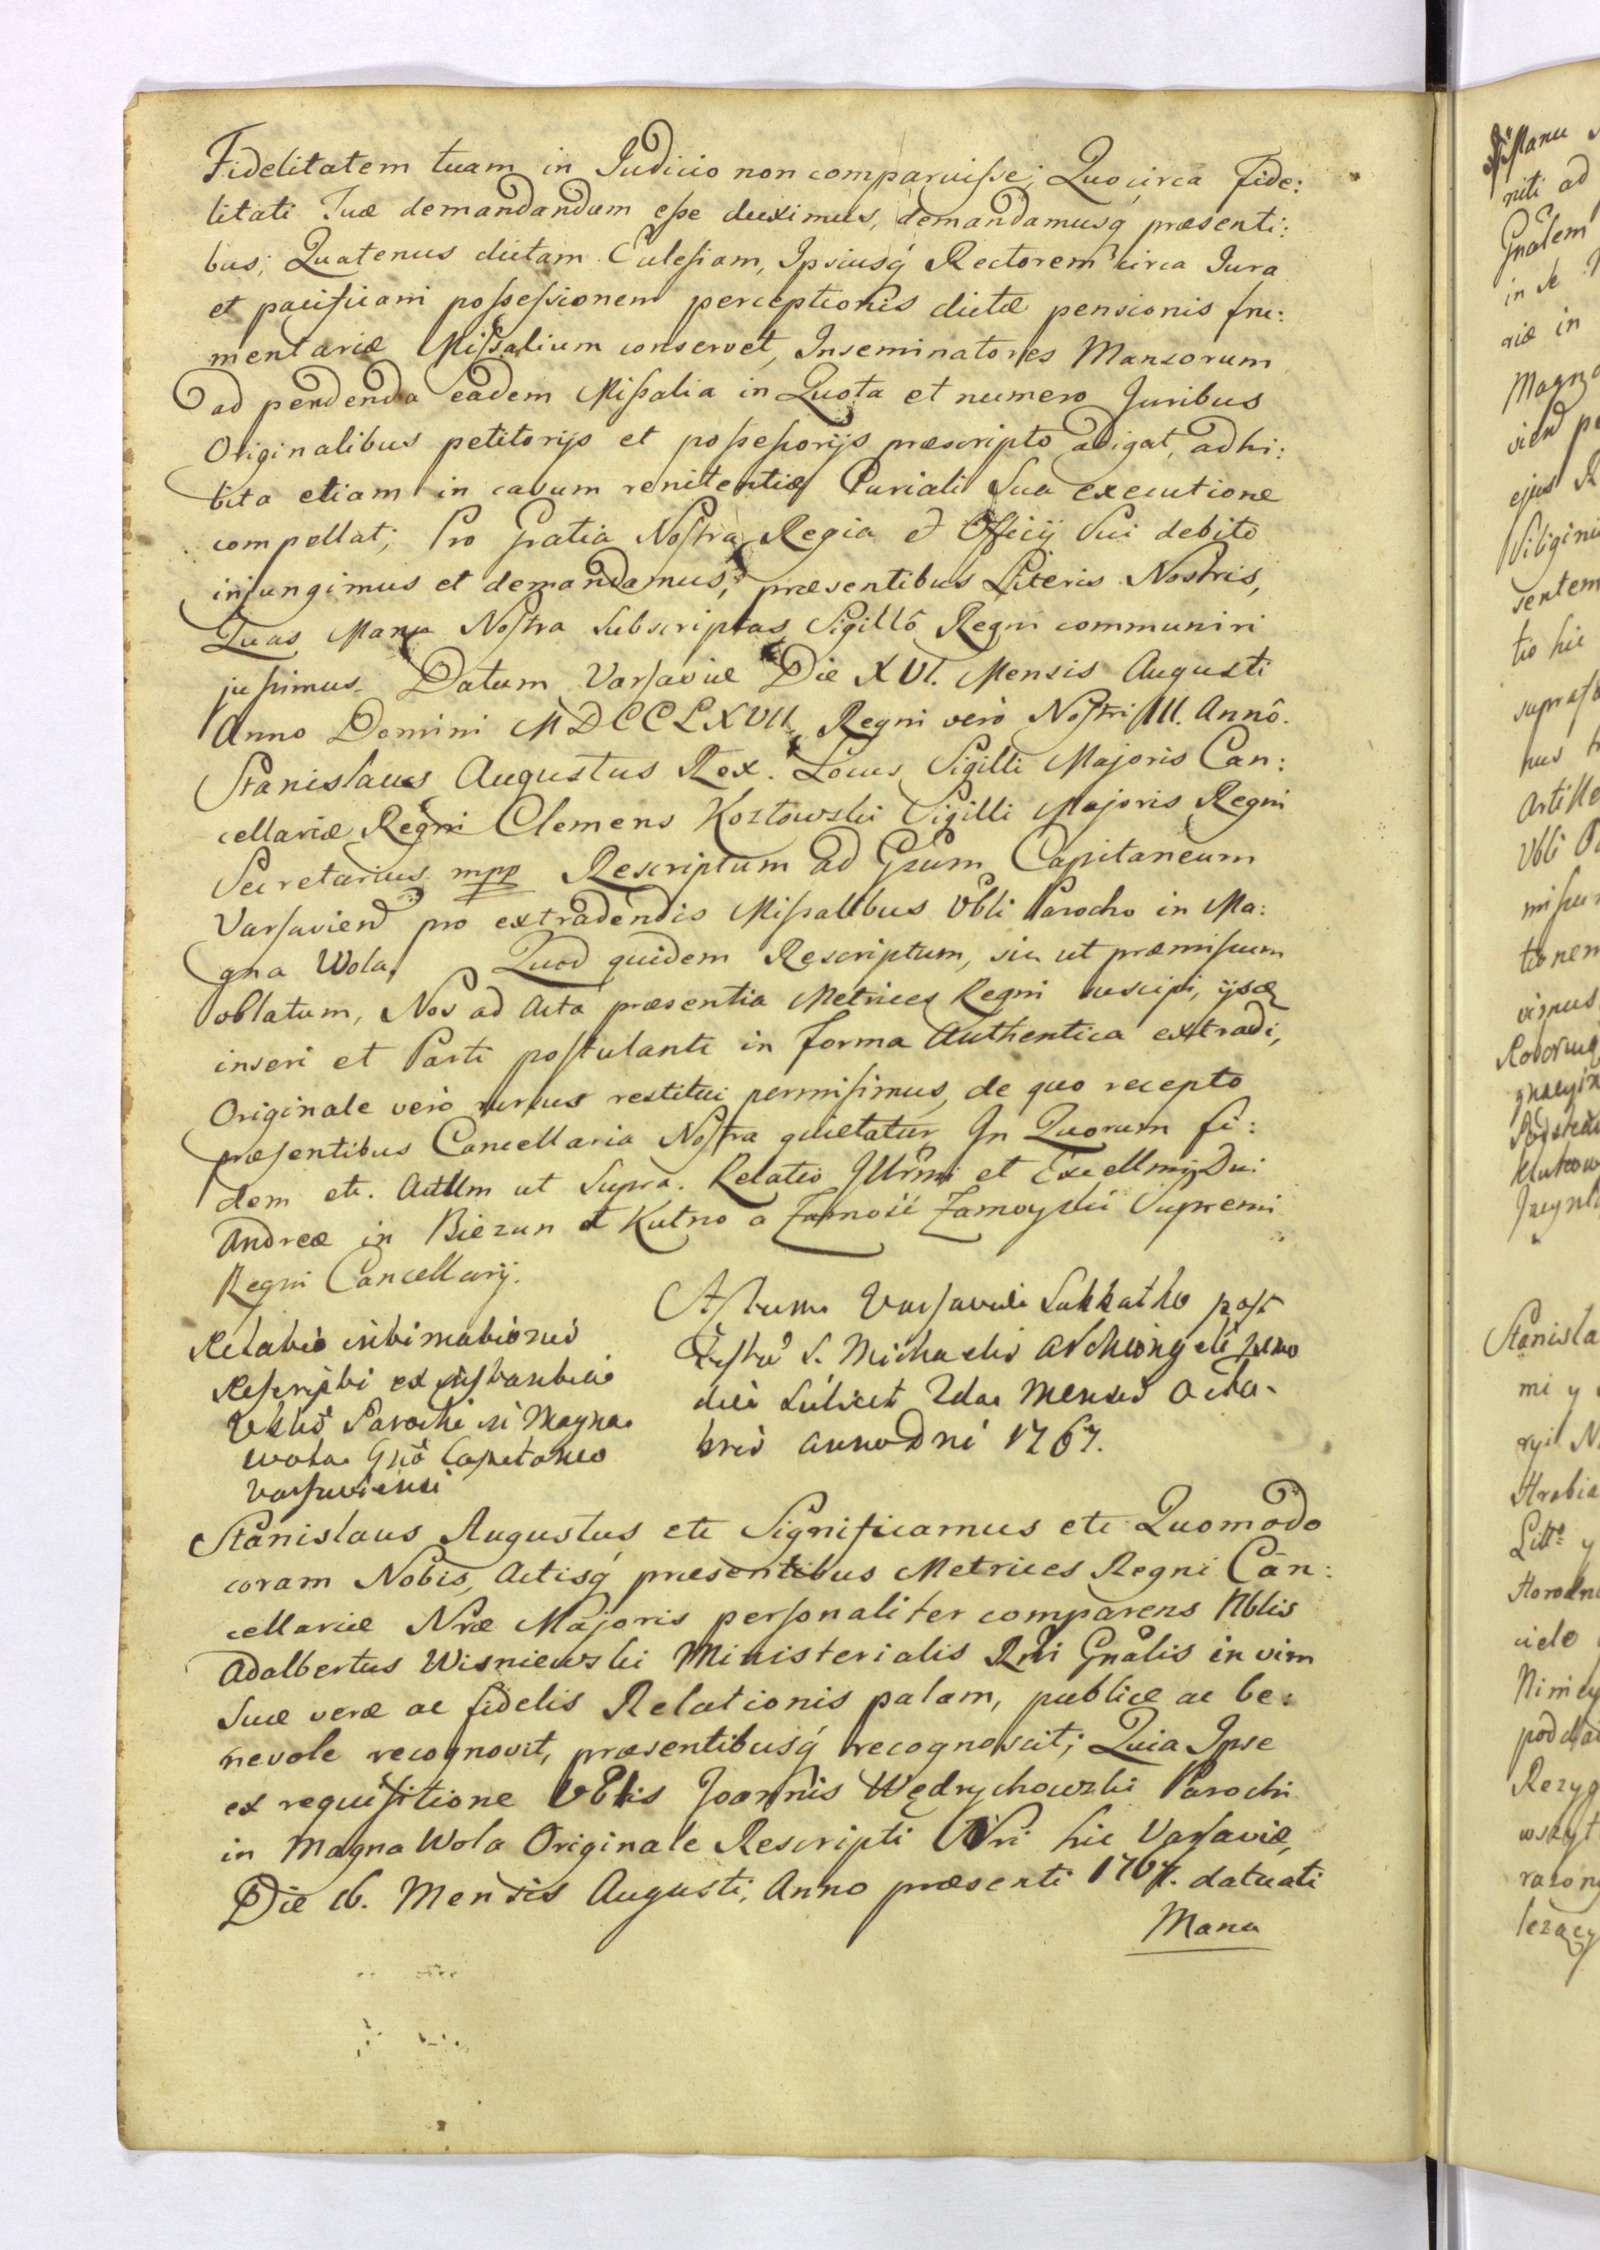 Fidelitatem tuam in Judicio non comparuisse; Quocirca Fide:
litati Tuæ demandandum esse duximus, demandamusq́ præsenti:
bus; Quatenus dictam Eclesiam, Ipsiusq́ Rectorem circa Jura
et pacificam possessionem perceptionis dictæ pensionis fru:
mentariæ Missalium conservet, Inseminatores Mansorum
ad pendenda eadem Missalia in Quota et numero Juribus
Originalibus petitorijs et possessorijs præscripto adigat, adhi:
bita etiam in casum renitentiæ Curiali sua executione
compellat; Pro Gratia Nostra Regia et Officij Sui debito
injungimus et demandamus, præsentibus Literis Nostris,
Quas Manu Nostra subscriptas Sigillô Regni communiri
jussimus. Datum Varsaviæ Die XVI. Mensis Augusti
Anno Domini MDCCLXVII. Regni verò Nostri III. Annô.
Stanislaus Augustus Rex. Locus Sigilli Majoris Can:
cellariæ Regni Clemens Kozłowski Sigilli Majoris Regni
Secretarius mpp Rescriptum ad Gsum Capitaneum
Varsavien pro extradendis Missalibus Vbli Parocho in Ma:
gna Wola. Quod quidem Rescriptum, sic ut præmissum
oblatum, Nos ad Acta præsentia Metrices Regni suscipi, ijsq
inseri et Parti postulanti in forma Authentica extradi,
Originale verò rursus restitui permisimus, de quo recepto
præsentibus Cancellaria Nostra quietatur. In Quorum fi:
dem etc. Actum ut supra. Relatio Illrmi et Excellmi Dni
Andreæ in Biezun et Kutno a Zamość Zamoyski Supremi
Regni Cancellarij.
Relatio intimationis
Rescripti ex instantia
Vblis Parochi in Magna
Wola Gsô Capitaneo
Varsaviensi
Actum Varsaviæ Sabbatho post
Festũ S. Michaelis Archangeli primo
die scilicet 2da Mensis Octo-
bris anno Dni 1767.
Stanislaus Augustus etc Significamus etc Quomodo
coram Nobis, Actisq́ præsentibus Metrices Regni Can:
cellariæ Nræ Majoris personaliter comparens Nblis
Adalbertus Wisniewski Ministerialis Rni Gnalis in vim
suæ veræ ac fidelis Relationis palam, publice ac be:
nevole recognovit, præsentibusq́ recognoscit; Quia Ipse
ex requisitione Vblis Joannis Wędrychowski Parochi
in Magna Wola Originale Rescripti Nri hic Varsaviæ,
Die 16. Mensis Augusti, Anno præsenti 1767. datuati
Manu